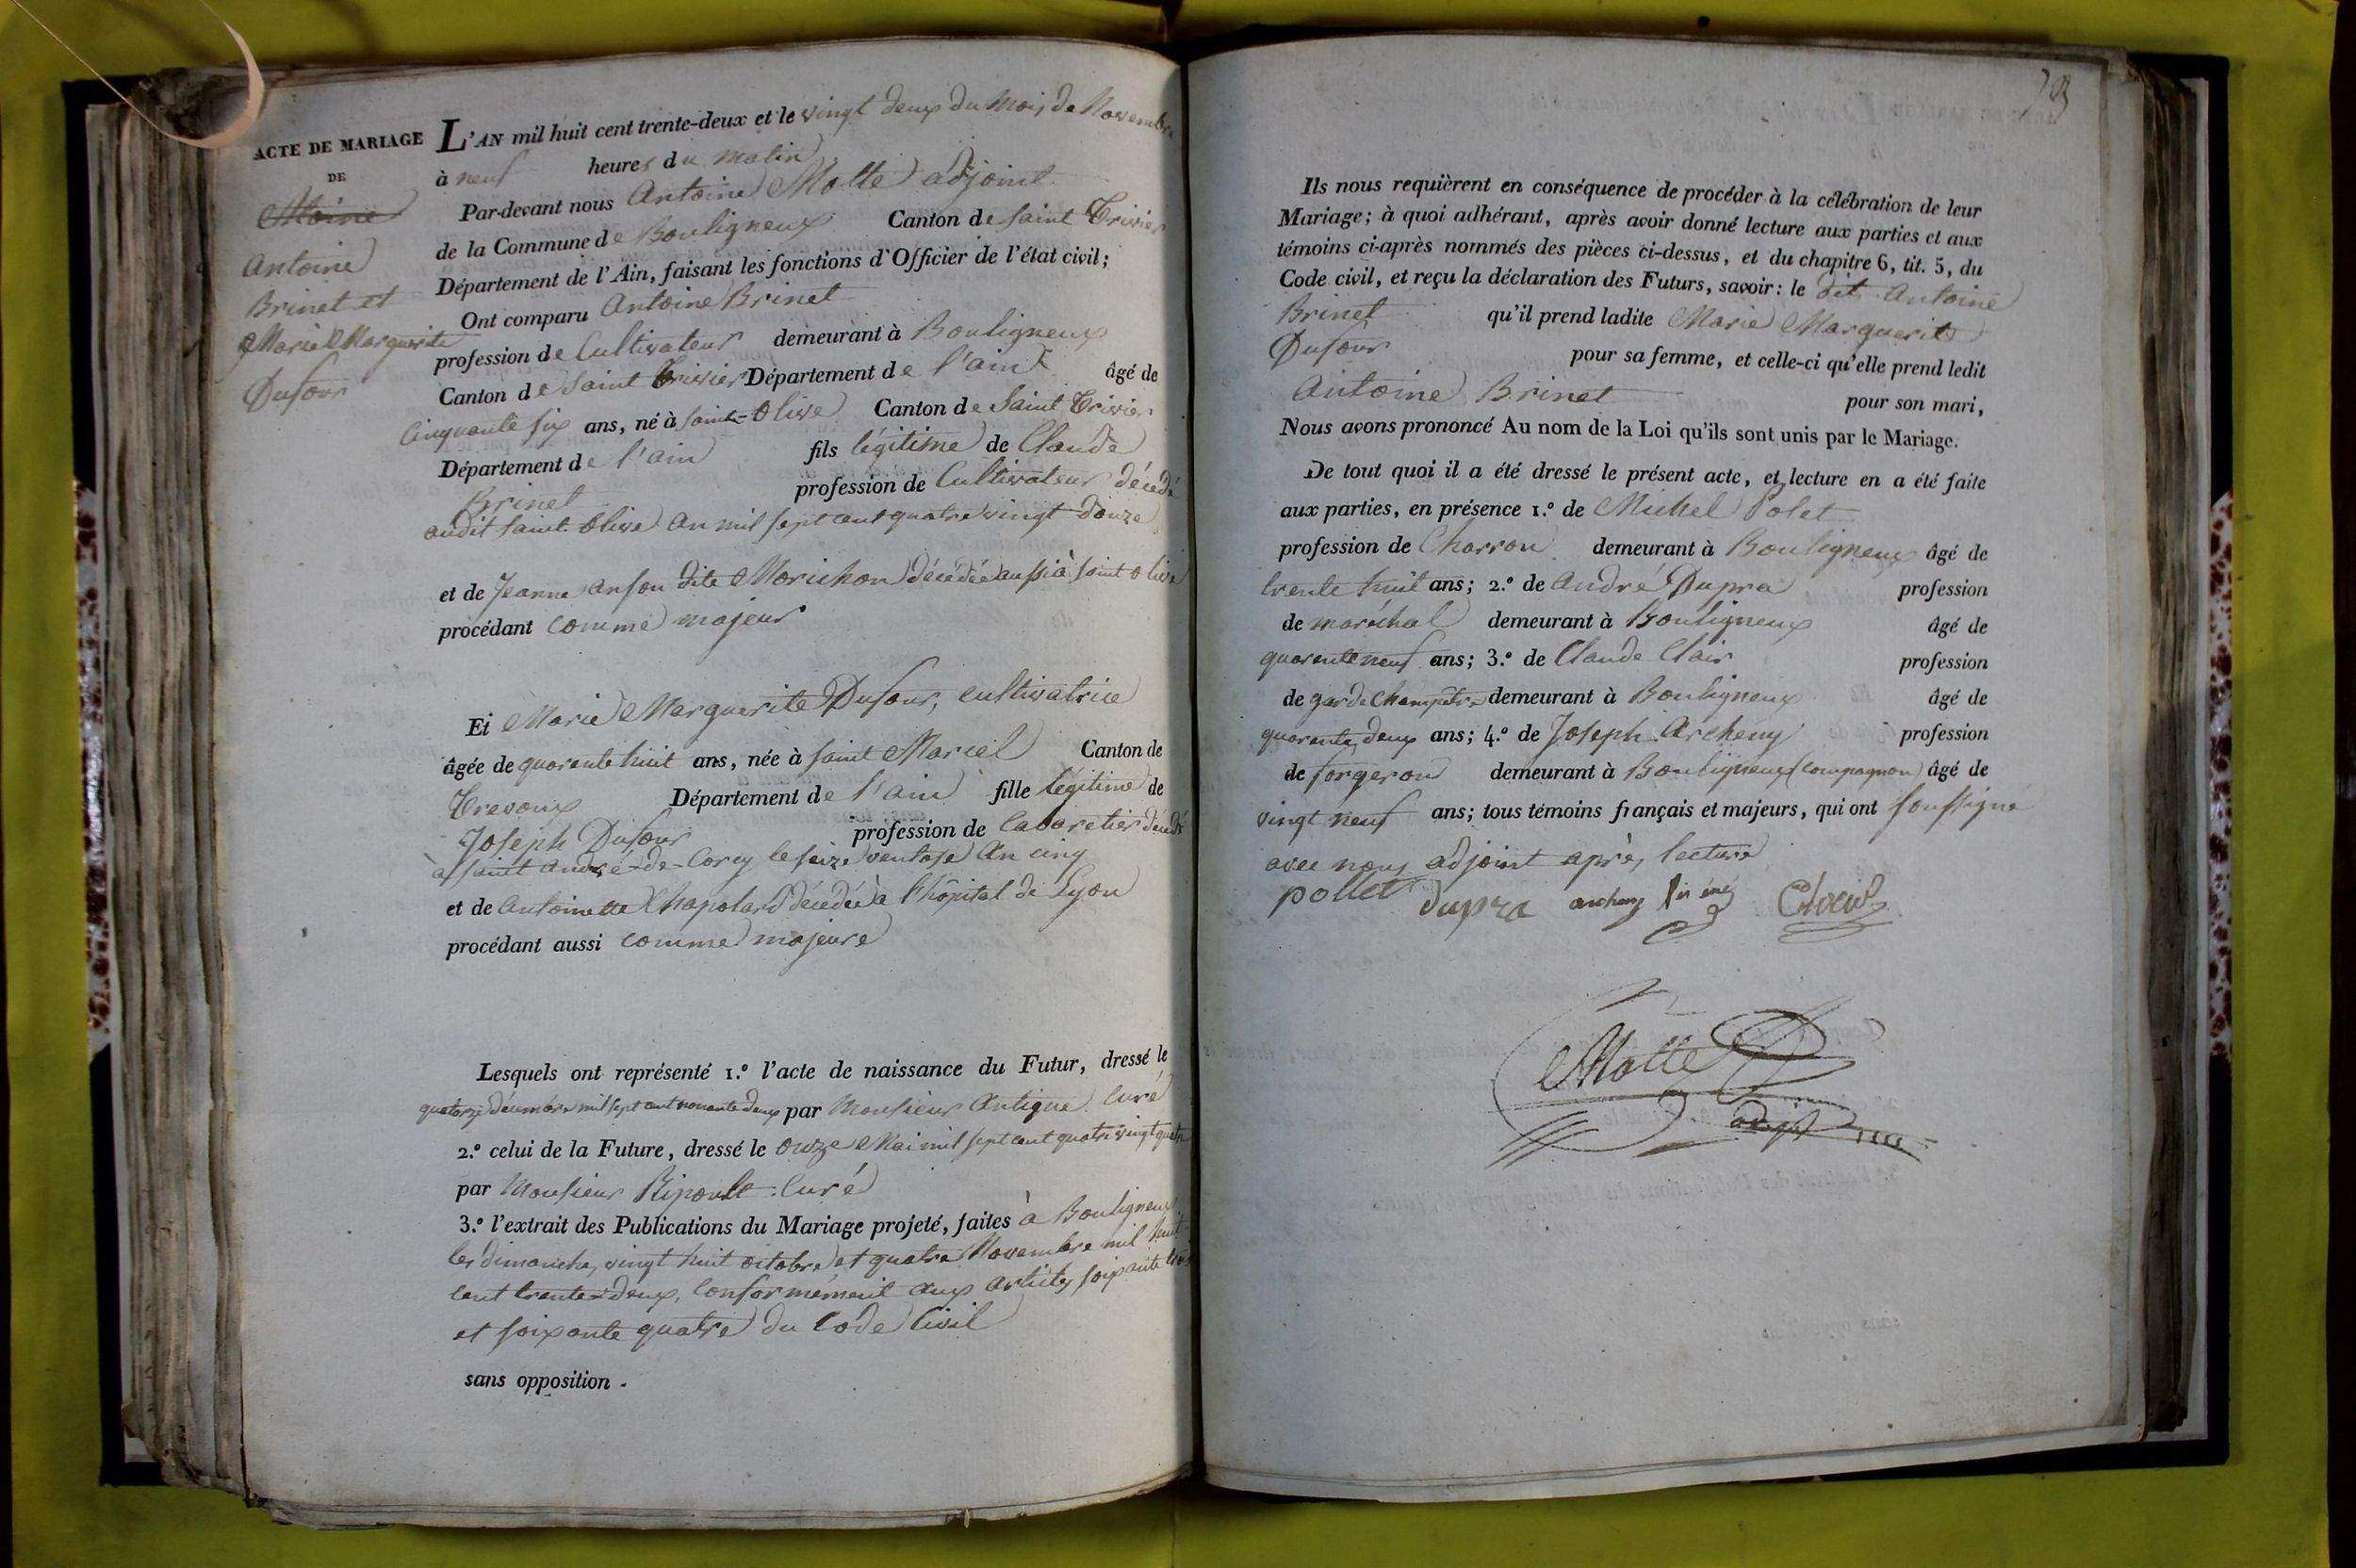 ACTE DE MARIAGE
DE
Antoine
Brinet et
Marie Marguerite
Dufour
L'AN mil huit cent trente-deux et le vingt deux du mois de Novembre
à neuf heures du matin
Par-devant nous Antoine Motte adjoint
de la Commune de Bouligneux Canton de Saint Trivier
Département de l'Ain, faisant les fonctions d'Officier de l'état civil;
Ont comparu Antoine Brinet
profession de Cultivateur demeurant à Bouligneux
Canton de Saint Trivier Département de l'ain âgé de
Cinquante six ans, né à saint-Olive Canton de Saint Trivier
Département de l'ain fils légitime de Claude
Brinet profession de Cultivateur décédé
audit saint Olive an mil sept cent quatre vingt douze
et de Jeanne anson dite Morichon décédée aussi à saint olive
procédant comme majeur
Et Marie Marguerite Dufour, cultivatrice
âgée de quarente huit ans, née à saint Marcel Canton de
Trevoux Département de l'ain fille légitime de
Joseph Dufour profession de Cabaretier décédé
à saint andré-de-Corcy le seize ventose an cinq
et de antoinette Chapolard décédée à l'hôpital de Lyon
procédant aussi comme majeure
Lesquels ont représenté 1.º l'acte de naissance du Futur, dressé le
quatorze décembre mil sept cent par Monsieur Antique Curé
2.º celui de la Future, dressé le onze Mai mil sept cent quatre vingt quatre
par Monsieur Ripoult Curé
3.º l'extrait des Publications du Mariage projeté, faites à Bouligneux
les dimanche, vingt huit octobre et quatre Novembre mil huit
cent trente-deux, conformément aux articles soixante trois
et soixante quatre du Code Civil
sans opposition.
Ils nous requièrent en conséquence de procéder à la célébration de leur
Mariage; à quoi adhérant, après avoir donné lecture aux parties et aux
témoins ci-après nommés des pièces ci-dessus, et du chapitre 6, tit. 5, du
Code civil, et reçu la déclaration des Futurs, savoir: le dit Antoine
Brinet qu'il prend ladite Marie Marguerite
Dufour pour sa femme, et celle-ci qu'elle prend ledit
Antoine Brinet pour son mari,
Nous avons prononcé Au nom de la Loi qu'ils sont unis par le Mariage.
De tout quoi il a été dressé le présent acte, et lecture en a été faite
aux parties, en présence 1.º de Michel Polet
profession de Charron demeurant à Bouligneux âgé de
trente huit ans; 2.º de André Dupra profession
de maréchal demeurant à Bouligneux âgé de
quarente neuf ans; 3.º de Claude Clair profession
de garde Champêtre demeurant à Bouligneux âgé de
quarente deux ans; 4.º de Joseph Archeny profession
de forgeron demeurant à Bouligneux (compagnon) âgé de
vingt neuf ans; tous témoins français et majeurs, qui ont soussigné
avec nous adjoint après lecture
pollet dupra archeny
Motte
adjt